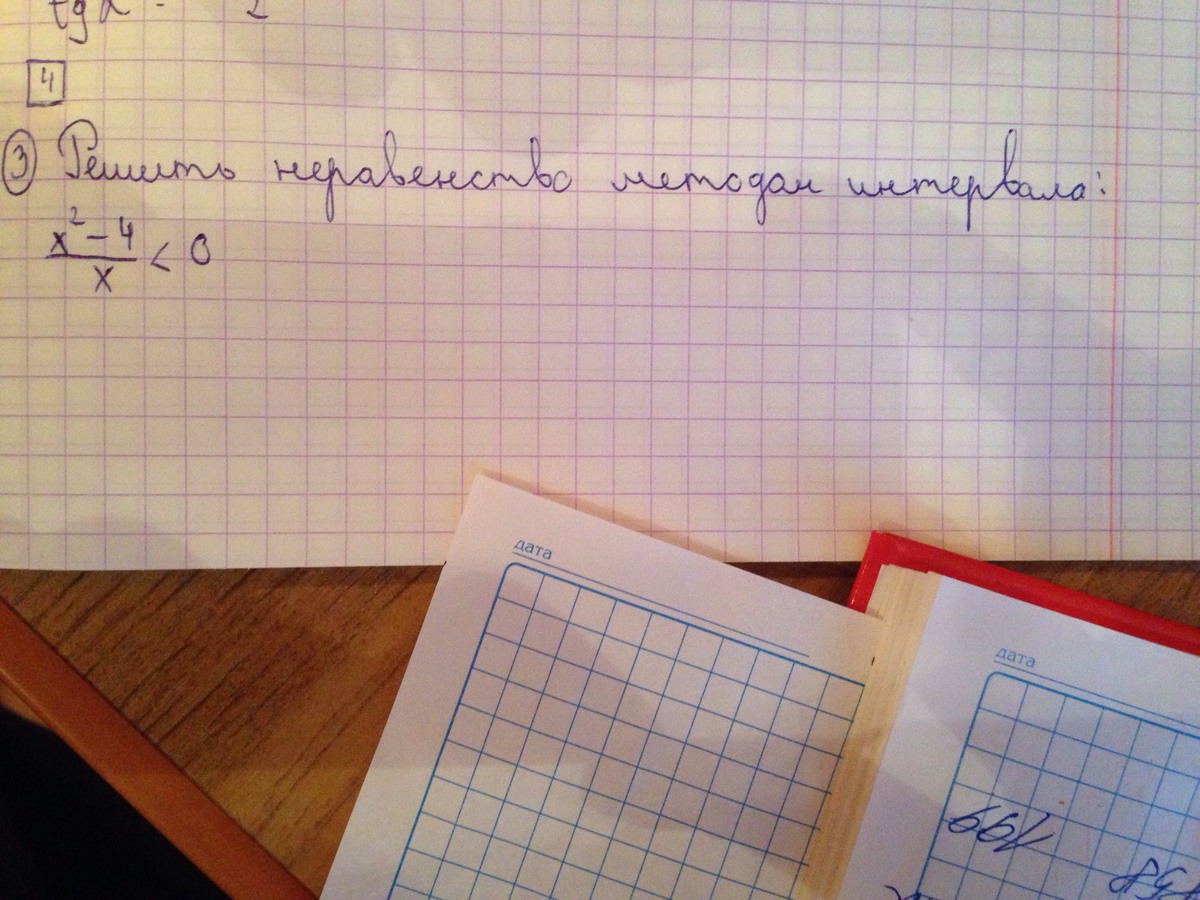 tg α = 2
4
③ Решить неравенство методом интервала:
x² - 4
x < 0
дата
дата